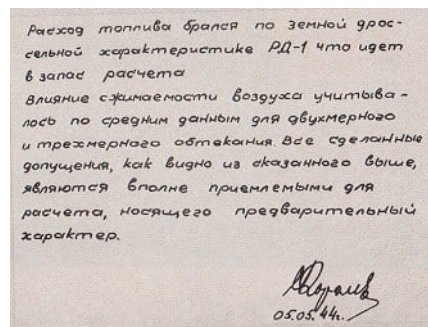 Расход топлива брался по земной дрос-
сельной характеристике РД-1 что идет
в запас расчета
Влияние сжимаемости воздуха учитыва-
лось по средним данным для двухмерного
и трехмерного обтекания. Все сделанные
допущения, как видно из сказанного выше,
являются вполне приемлемыми для
расчета, носящего предварительный
характер.
05.05.44г.